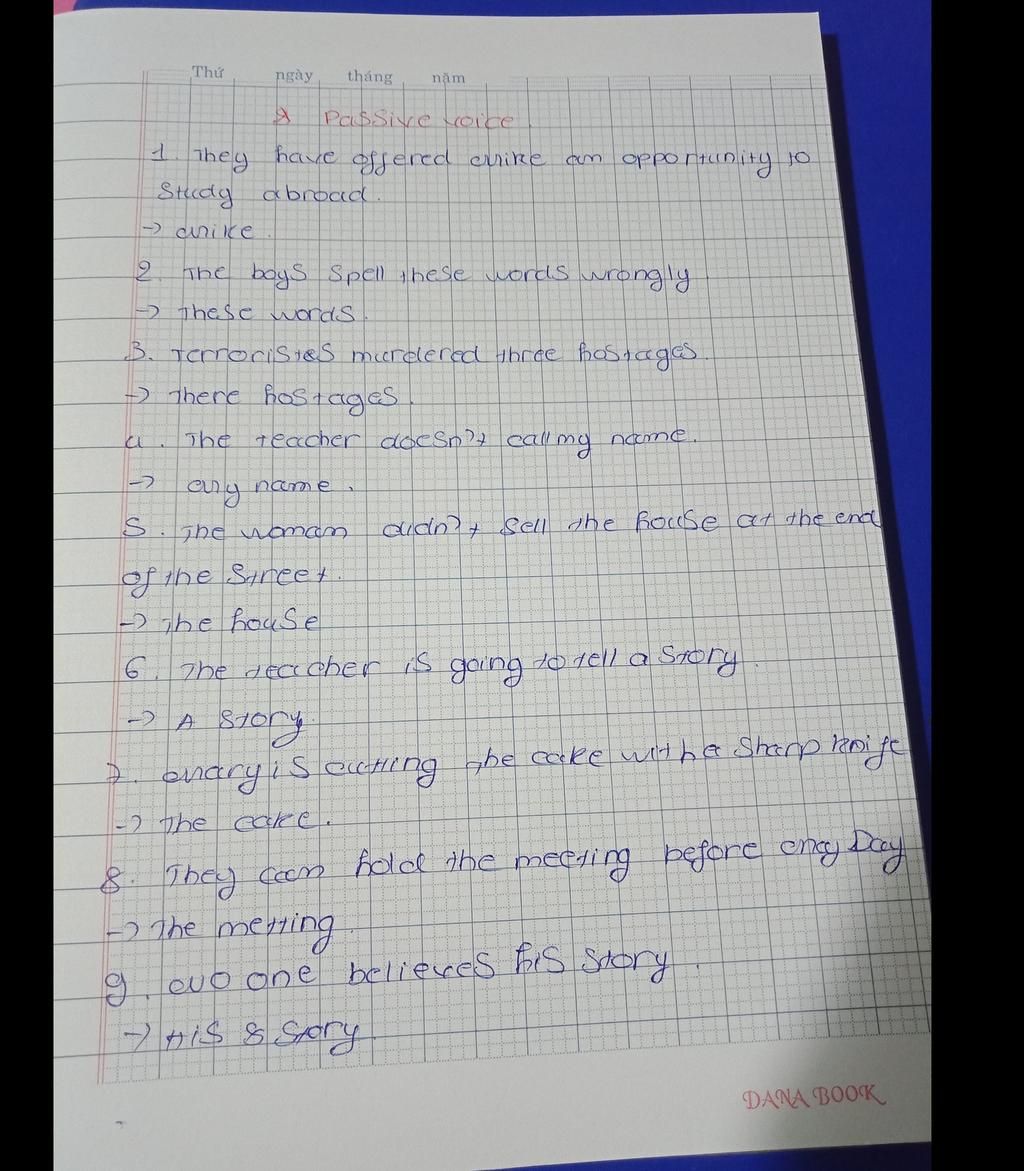 Thứ ngày tháng năm
Passive voice
1. They have offered Mike an opportunity to
Study abroad.
→ Mike.
2. The boys spell these words wrongly
→ These words.
3. Terroristes murdered three hostages.
→ There hostages.
4. The teacher doesn't call my name.
→ My name.
5. The woman didn't sell the house at the end
of the street.
→ The house
6. The teacher is going to tell a story.
→ A story.
7. Mary is cutting the cake with a sharp knife
→ The cake.
8. They can hold the meeting before May Day
→ The metting.
9. No one believes his story.
→ His story
DANA BOOK